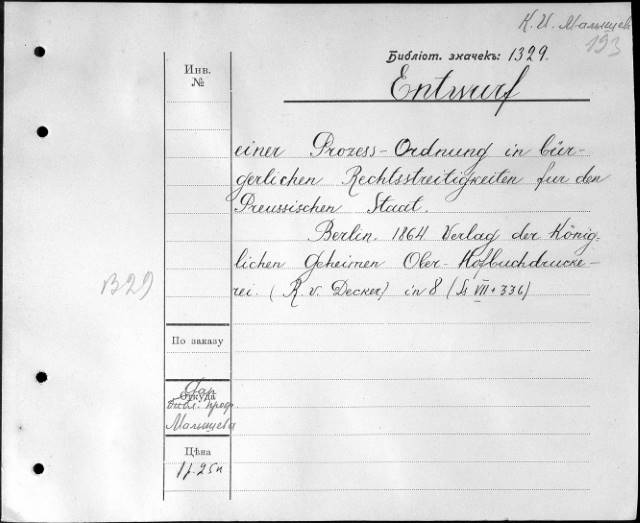 К. И. Малышев
193
Библіот. значекъ: 1329.
Инв.
№
Entwurf
einer Prozess-Ordnung in bür-
gerlichen Rechtsstreitigkeiten fur den
Preussischen Staat.
Berlin. 1864 Verlag der König-
lichen Geheimen Ober-Hofbuchdrucke-
rei. (R. v. Decker) in 8 (Ss VII + 336)
B29
По заказу
Откуда
Дар
библ. проф.
Малышева
Цѣна
1 р. 25 к